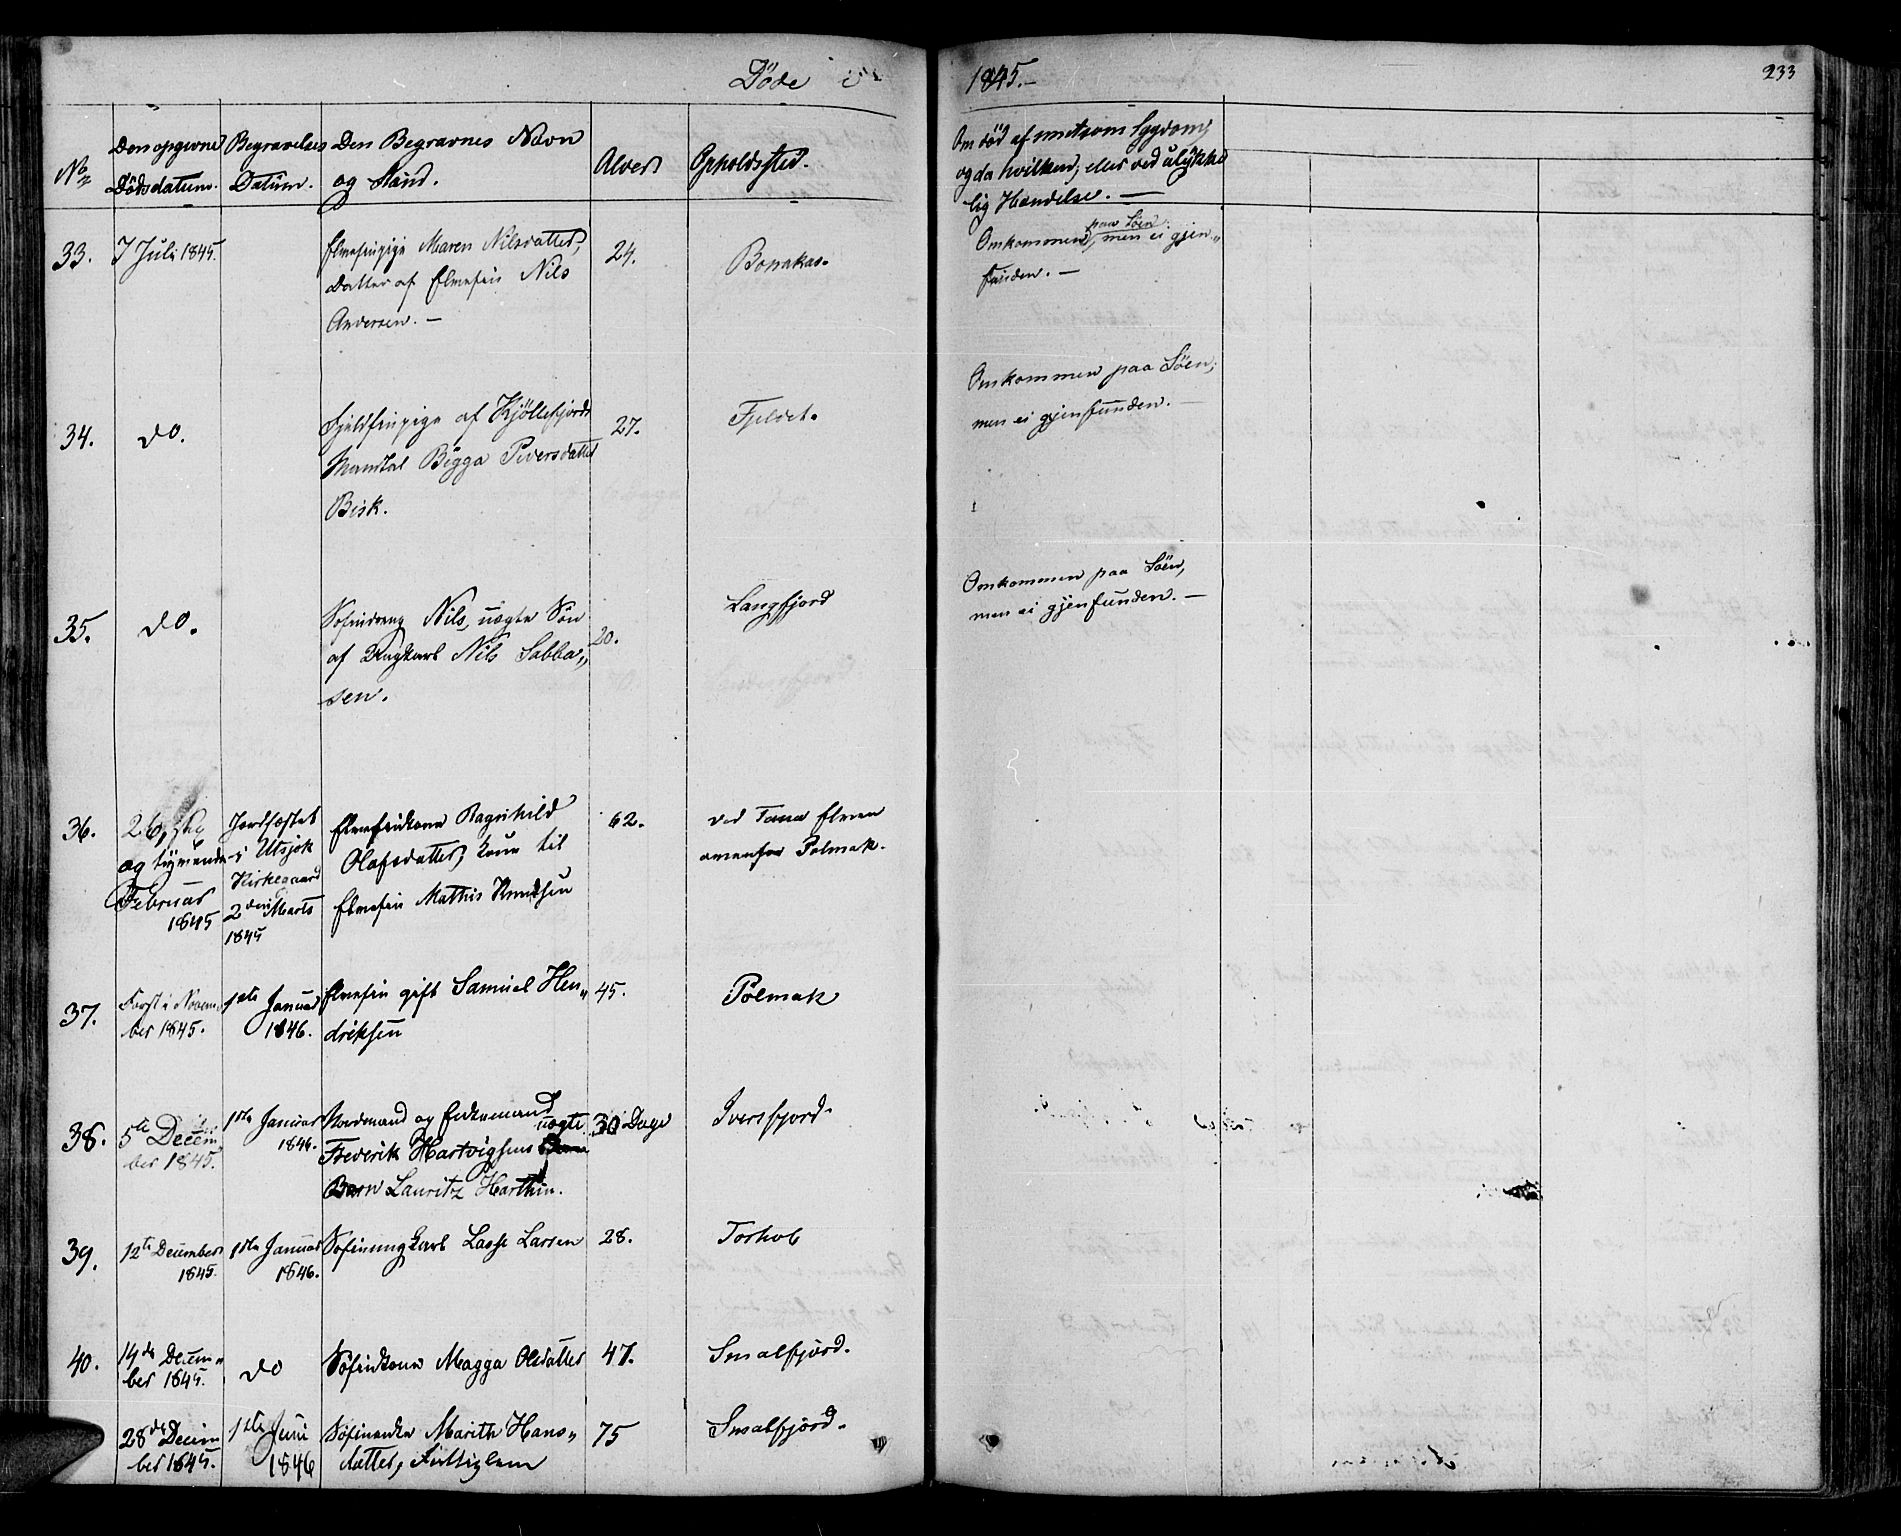 Döde
1845.-
233
No
Den opgivne
Dödsdatum.
Begravelses
Datum.
Den Begravnes Navn
og Stand.
Alder
Opholdssted.
Om död af smitsom Sygdom,
og da hvilken, eller ved ulykke
lig Hændelse. —
33.
7 Juli 1845.
Elvefinpige Maren Nilsdatter,
Datter af Elvefin Nils
Andersen. —
24.
Bonakas.
paa Söen
Omkommen, men ei gjen„
funden. —
34.
do.
Fjeldfinpige af Kjöllefjords
Mandtal Bigga Peversdatter
Bisk.
27.
Fjeldet.
Omkommen paa Söen;
men ei gjenfunden. —
35.
do.
Söfindreng Nils, uægte Sön
af Ungkarl Nils Sabba„
sen.
20.
Langfjord
Omkommen paa Söen,
men ei gjenfunden. —
36.
26, sky
og tyvende
Februar
1845
Jordfæstet
i Utsjok
Kirkegaard
2den Marts
1845
Elvefinkone Ragnhild
Olafsdatter, kone til
Elvefin Mathis Knudsen
62.
ved Tana Elven
ovenfor Polmak.
37.
Först i Novem
ber 1845.
1ste Januar
1846.
Elvefin gift Samuel Hen„
driksen
45.
Polmak
38.
5te Decem
ber 1845.
1ste Januar
1846.
Nordmand og Enkemand
uægte
Frederik Hartvigsens
Barn Lauritz Harthin.
30 Dage
Iversfjord.
39.
12te December
1845.
1ste Januar
1846.
Söfinungkarl Lasse Larsen
28.
Torhob
40.
14de Decem„
ber 1845.
do
Söfinkone Magga Olsdatter
47.
Smalfjord.
28de Decem
ber 1845.
1ste Juni
1846
Söfinenke Marith Hans„
datter, Fattiglem
75
Smalfjord.